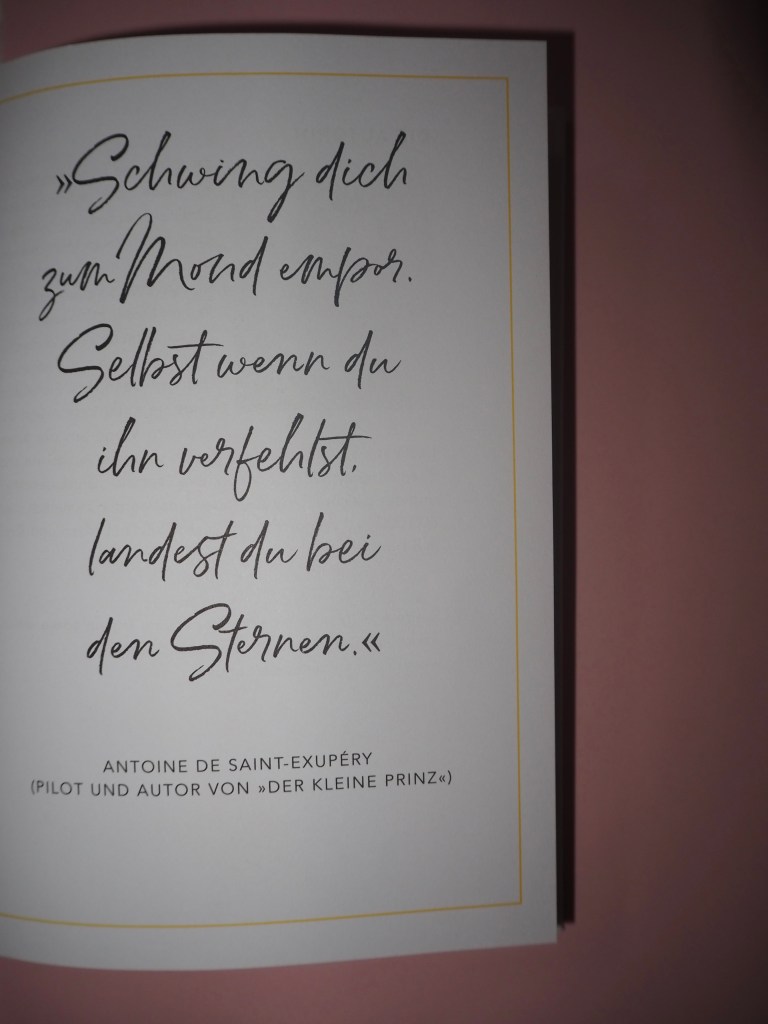 »Schwing dich
zum Mond empor.
Selbst wenn du
ihn verfehlst,
landest du bei
den Sternen.«
ANTOINE DE SAINT-EXUPÉRY
(PILOT UND AUTOR VON »DER KLEINE PRINZ«)